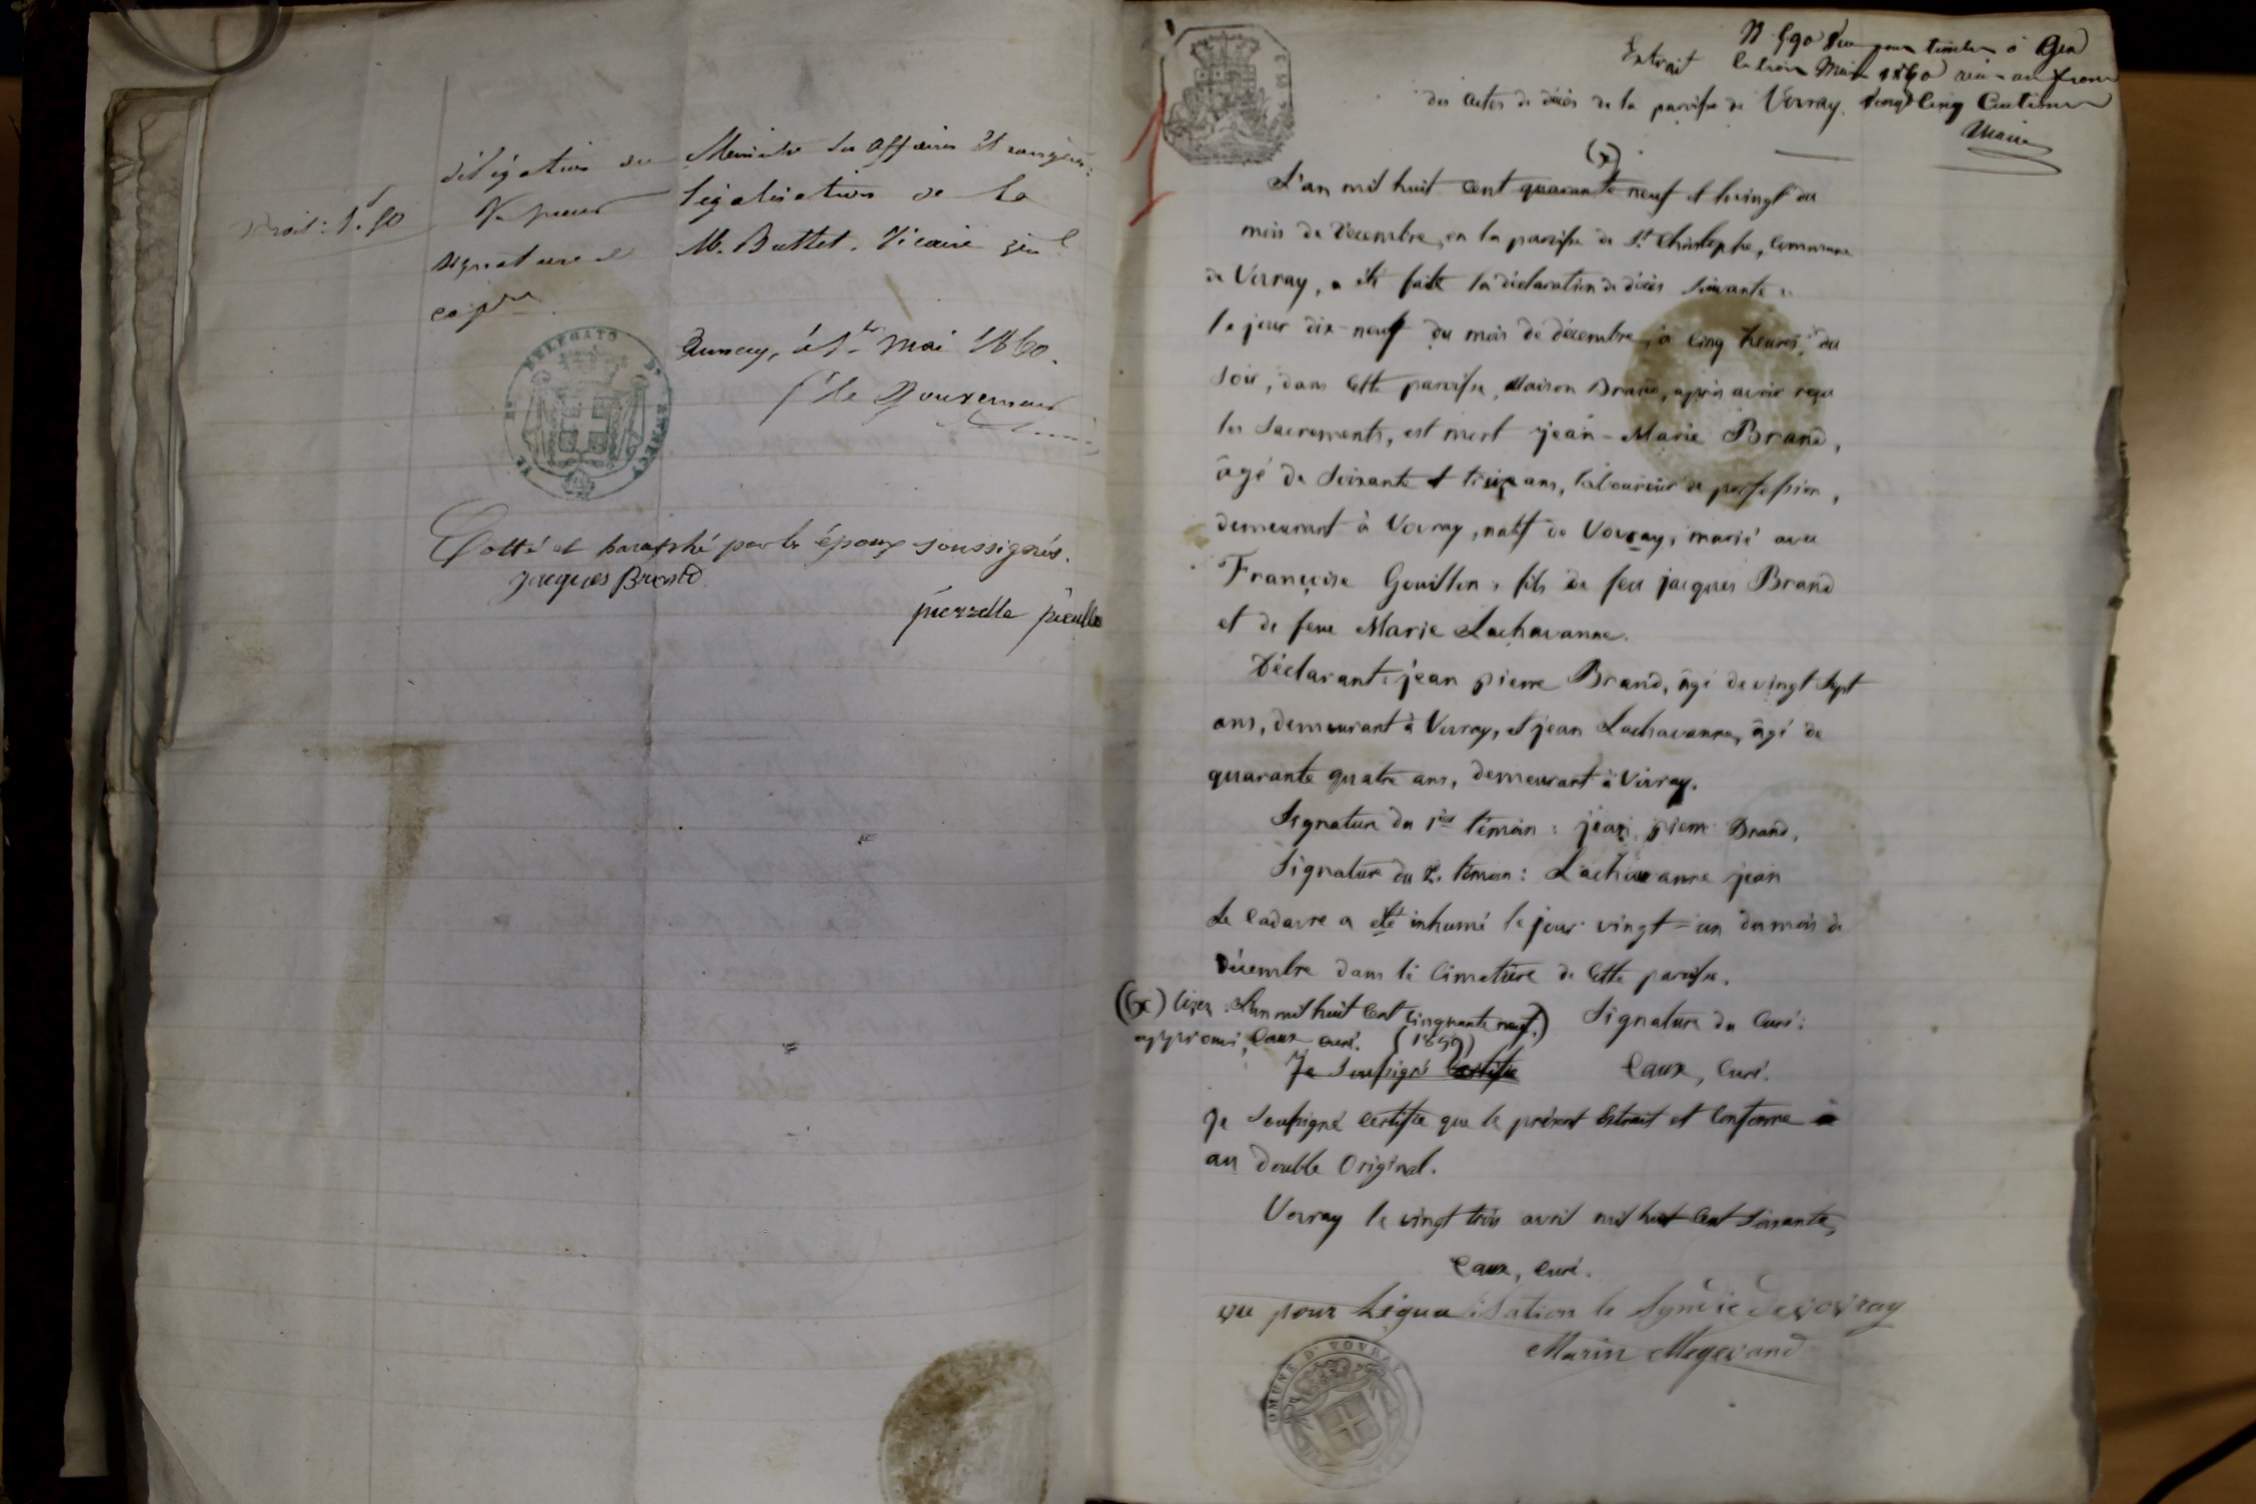 délégation du Ministre des Affaires Etrangères
Droit: 1.50 Vu pour légalisation de la
signature de M. Buttet, Vicaire gén.l
Annecy, le 1er mai 1860.
Le Gouverneur
Cotté et paraphé par les époux soussignés.
jacques Brand
pierrette
N 590 Vu pour timbre à Gex
Extrait le trois Mai 1860 reçu un franc
des actes de décès de la paroisse de Vovray. vingt Cinq Centimes
(x)
L'an mil huit cent quarante neuf et le vingt du
mois de Décembre, en la paroisse de St Christophe, Commune
de Vovray, a été faite la déclaration de décès suivante :
le jour dix-neuf du mois de décembre, à cinq heures, du
soir, dans cette paroisse, Maison Brand, après avoir reçu
les Sacrements, est mort jean-Marie Brand,
âgé de soixante et ans, laboureur de profession,
demeurant à Vovray, natif de Vovray, marié avec
Françoise Gouillon, fils de feu jacques Brand
et de feue Marie Lachavanne.
Déclarants jean pierre Brand, âgé de vingt Sept
ans, demeurant à Vovray, et jean Lachavanne, âgé de
quarante quatre ans, demeurant à Vovray.
Signature du 1er témoin : jean pierre Brand,
Signature du 2. témoin : Lachavanne jean
Le Cadavre a été inhumé le jour vingt=un du mois de
Décembre dans le Cimetière de cette paroisse.
(x) lisez : L'an mil huit Cent cinquante neuf.) Signature du Curé :
approuvé, Caux curé. (1859)
Je Soussigné Certifie Caux, Curé.
Je Soussigné certifie que le présent Extrait est Conforme
au double Original.
Vovray le vingt trois avril mil huit Cent Soixante,
Caux, curé.
vu pour Légualisation le Syndic de vovray
Marin Megevand
COMUNE DI VOVRAY